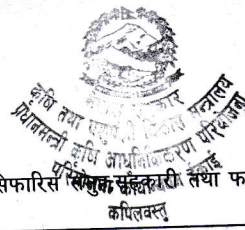 नेपाल सरकार
कृषि तथा पशुपन्छी विकास मन्त्रालय
प्रधानमन्त्री कृषि आधुनिकीकरण परियोजना
परियोजना कार्यान्वयन इकाई
सिफारिस सहकारी तथा फ
कपिलवस्तु